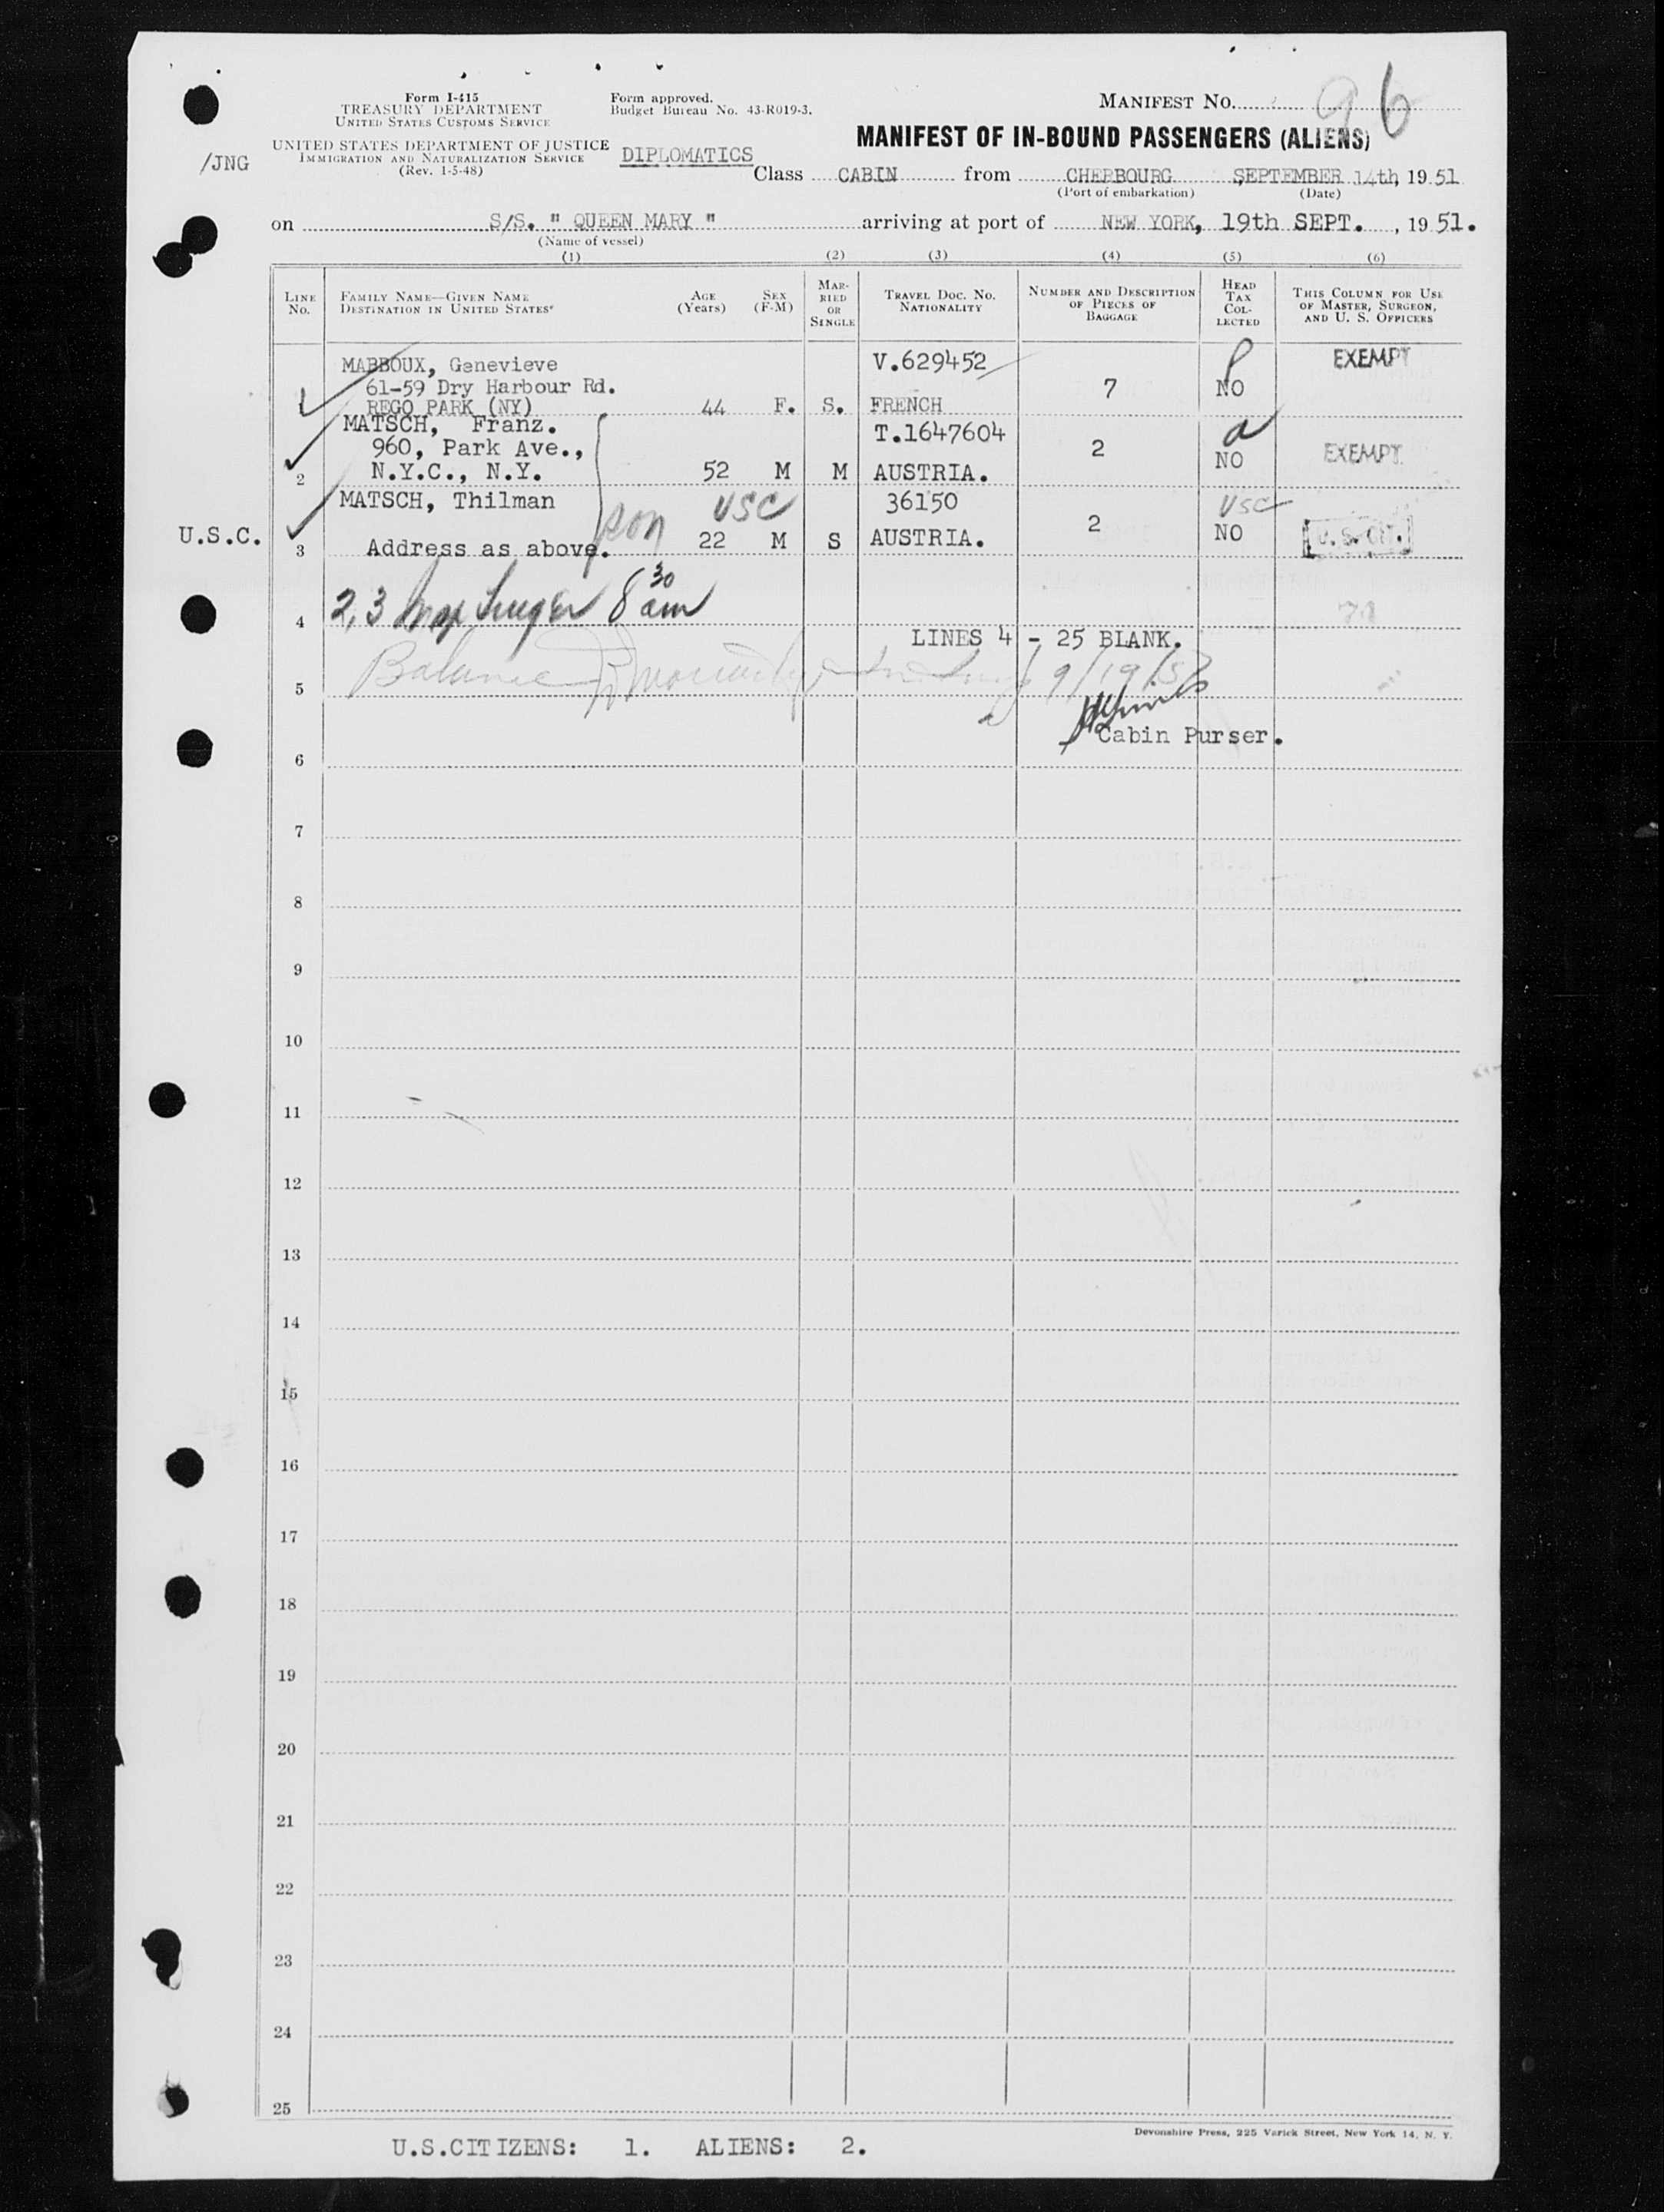 Form I-415
TREASURY DEPARTMENT
UNITED STATES CUSTOMS SERVICE
UNITED STATES DEPARTMENT OF JUSTICE
IMMIGRATION AND NATURALIZATION SERVICE
(Rev. 1-5-48)
/JNG
Form approved.
Budget Bureau No. 43-R019-3.
DIPLOMATICS
MANIFEST NO. 96
MANIFEST OF IN-BOUND PASSENGERS (ALIENS)
Class CABIN from CHERBOURG SEPTEMBER 14th, 1951
(Port of embarkation) (Date)
on S/S. " QUEEN MARY " arriving at port of NEW YORK, 19th SEPT. , 1951.
(Name of vessel)
(1) (2) (3) (4) (5) (6)
LINE NO. FAMILY NAME—GIVEN NAME DESTINATION IN UNITED STATES* AGE (Years) SEX (F-M) MARRIED OR SINGLE TRAVEL DOC. NO. NATIONALITY NUMBER AND DESCRIPTION OF PIECES OF BAGGAGE HEAD TAX COLLECTED THIS COLUMN FOR USE OF MASTER, SURGEON, AND U. S. OFFICERS
MABBOUX, Genevieve V.629452 EXEMPT
61-59 Dry Harbour Rd. 7 NO
REGO PARK (NY) 44 F. S. FRENCH
MATSCH, Franz. T.1647604
960, Park Ave., 2 NO EXEMPT
2 N.Y.C., N.Y. 52 M M AUSTRIA.
MATSCH, Thilman USC 36150 USC
U.S.C. son 2 NO U.S. CIT.
3 Address as above. 22 M S AUSTRIA.
2,3 8 30 am
4 LINES 4 - 25 BLANK.
Balance 9/19/51
5
Cabin Purser.
6
7
8
9
10
11
12
13
14
15
16
17
18
19
20
21
22
23
24
25
Devonshire Press, 225 Varick Street, New York 14, N. Y.
U.S.CITIZENS: 1. ALIENS: 2.